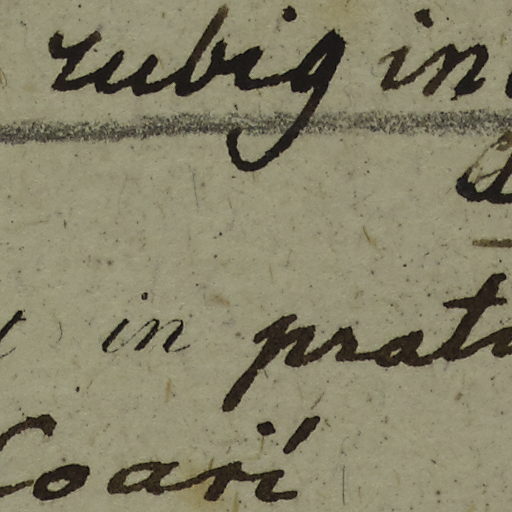 rubigin
in prat
Coari